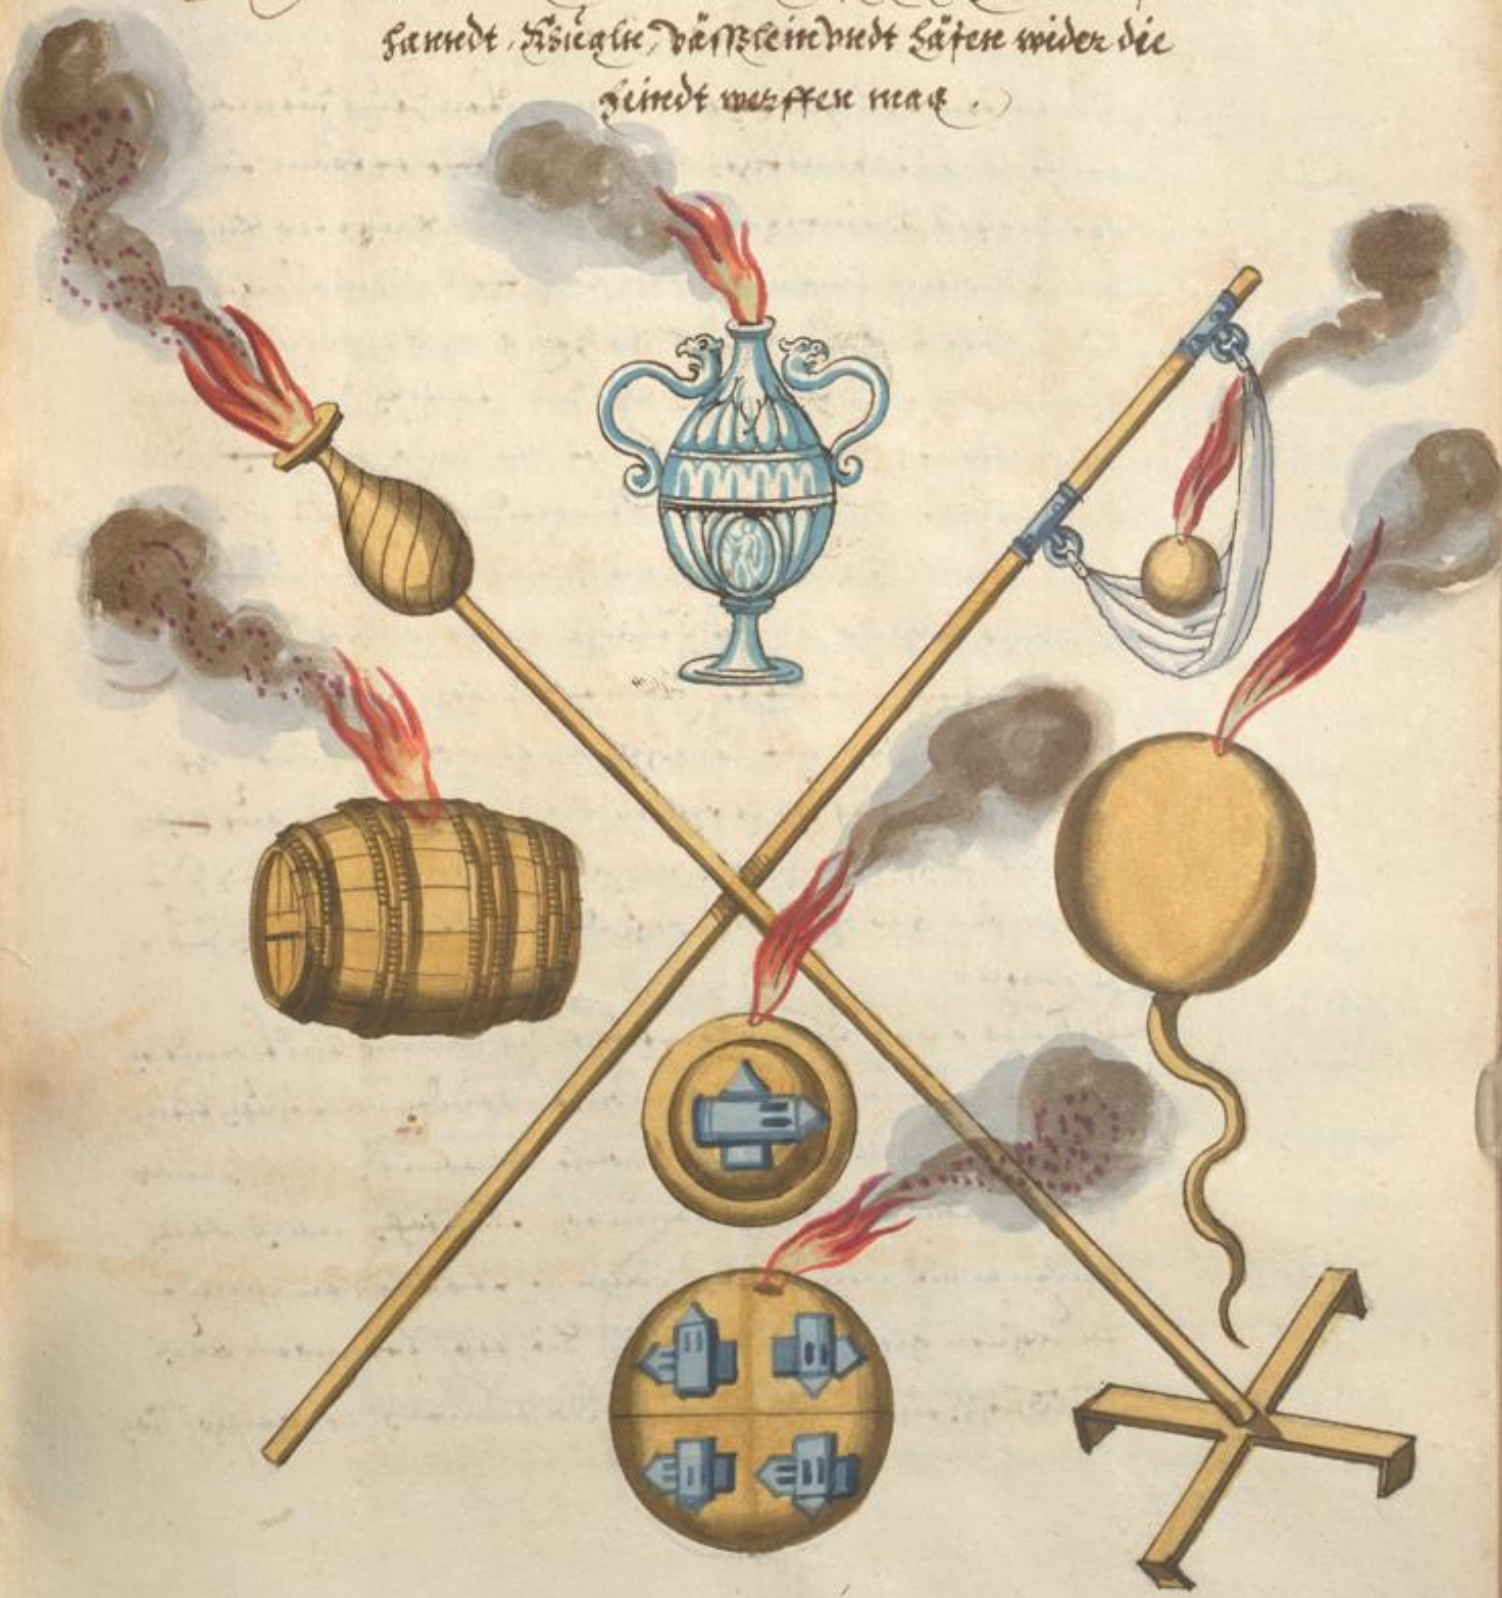 handt, Kůgln, Väßlein vndt häfen wider die
feindt werffen mag.